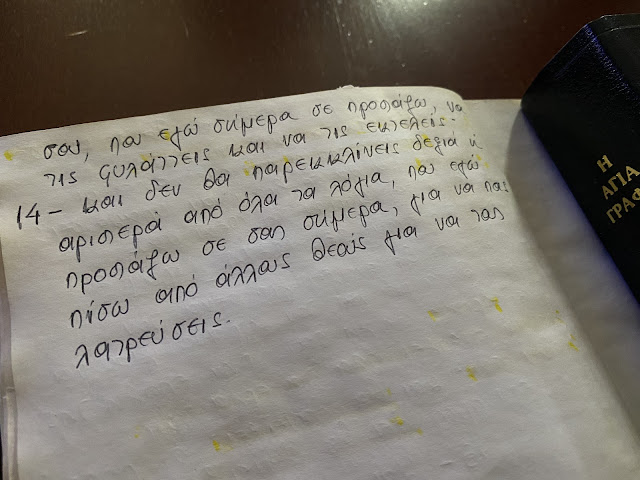 σου, που εγώ σήμερα σε προστάζω, να
τις φυλάττεις και να τις εκτελείς·
14 - και δεν θα παρεκκλίνεις δεξιά ή
αριστερά από όλα τα λόγια, που εγώ
προστάζω σε σας σήμερα, για να πας
πίσω από άλλους θεούς για να τους
λατρεύσεις.
Η
ΑΓΙΑ
ΓΡΑΦ